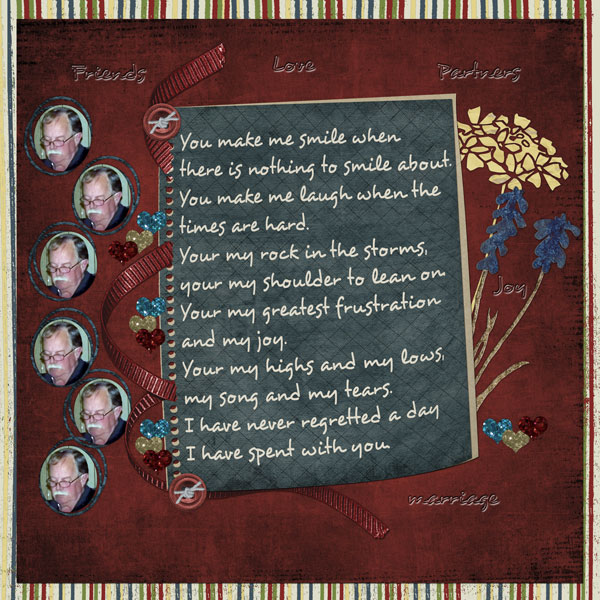 Friends
Love
Partners
You make me smile when
there is nothing to smile about.
You make me laugh when the
times are hard.
Your my rock in the storms,
your my shoulder to lean on
Your my greatest frustration
and my joy.
Your my highs and my lows,
my song and my tears.
I have never regretted a day
I have spent with you
Joy
marriage